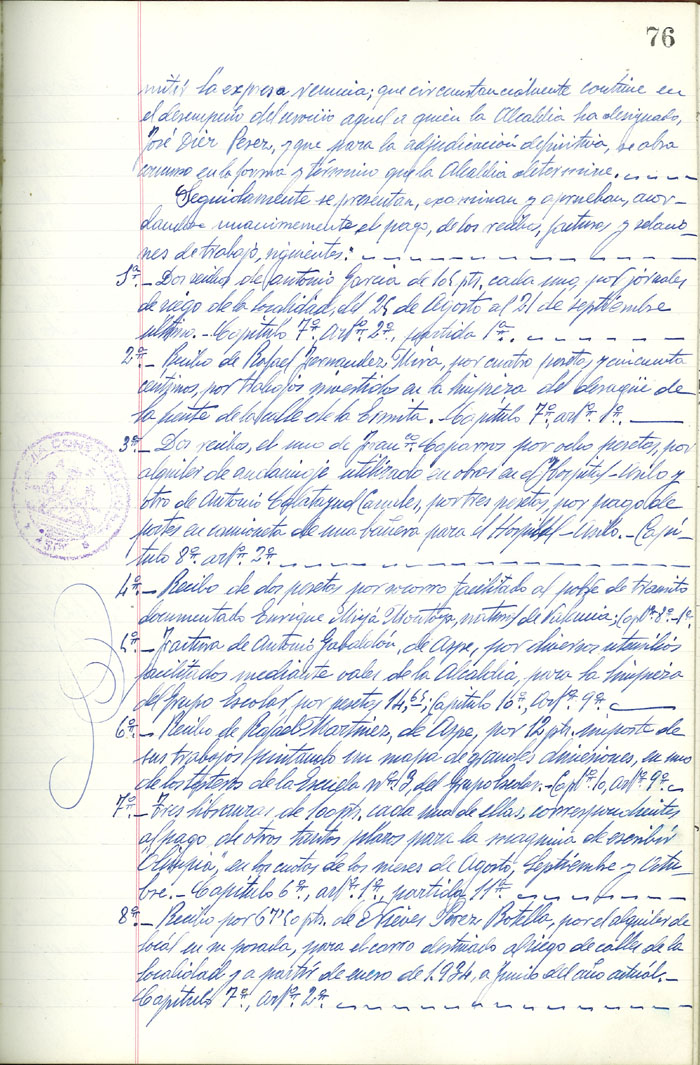 76
mitir la expresa renuncia; que circunstancialmente continue en
el desempeño del servicio aquel a quien la Alcaldía ha designado,
José Dier Perez, y que para la adjudicación definitiva, se abra
concurso en la forma y término que la Alcaldia determine.
Seguidamente se presentan, examinan y aprueban, acor-
dandose unanimemente el pago, de los recibos, facturas y relacio-
nes de trabajo, siguientes:
1º.- Dos recibos de Antonio Garcia de 105 pts. cada uno, por jornales
de riego de la localidad, del 25 de Agosto al 21 de septiembre
último.- Capítulo 7º. artº. 2º. partida 1ª.
2º.- Recibo de Rafael Fernandez Mira, por cuatro pesetas y cincuenta
centimos, por trabajos invertidos en la limpieza del desagüe de
la fuente de la calle de la Ermita.- Capítulo 7º, artº. 1º.
3º.- Dos recibos, el uno de Franco. Caparros por ocho pesetas, por
alquiler de andamiaje utilizado en obras en el Hospital-Asilo y
otro de Antonio Calatayud, por tres pesetas, por pago de
portes en camioneta de una bañera para el Hospital-Asilo.- Capí-
tulo 8º. artº. 2º.
4º.- Recibo de dos pesetas por socorro facilitado al pobre de transito
documentado Enrique Mijà Montoya, natural de Valencia; Capº. 8º-1º.
5º.- Factura de Antonio Gabaldón, de Aspe, por diversos utensilios
facilitados mediante vales de la Alcaldía, para la limpieza
del Grupo Escolar, por pesetas 14,65; Capítulo 10º, Artº. 9º.
6º.- Recibo de Rafael Martinez, de Aspe, por 12 pts. importe de
sus trabajos pintando un mapa de grandes dimensiones, en uno
de los testeros de la Escuela nº. 3, del Grupo Escolar.- Capº. 10, Artº. 9º.
7º.- Tres libranzas de 100 pts. cada una de ellas, correspondientes
al pago de otros tantos plazos para la maquina de escribir
"Olimpia", en las cuotas de los meses de Agosto, Septiembre y Octu-
bre.- Capítulo 6º, artº. 1º, partida 11ª.
8º.- Recibo por 67'50 pts. de Nieves Perez Botella, por el alquiler de
local en su posada, para el carro destinado al riego de calles de la
localidad y a partir de enero de 1.934, a Junio del año actual.-
Capítulo 7º, Artº. 2º.